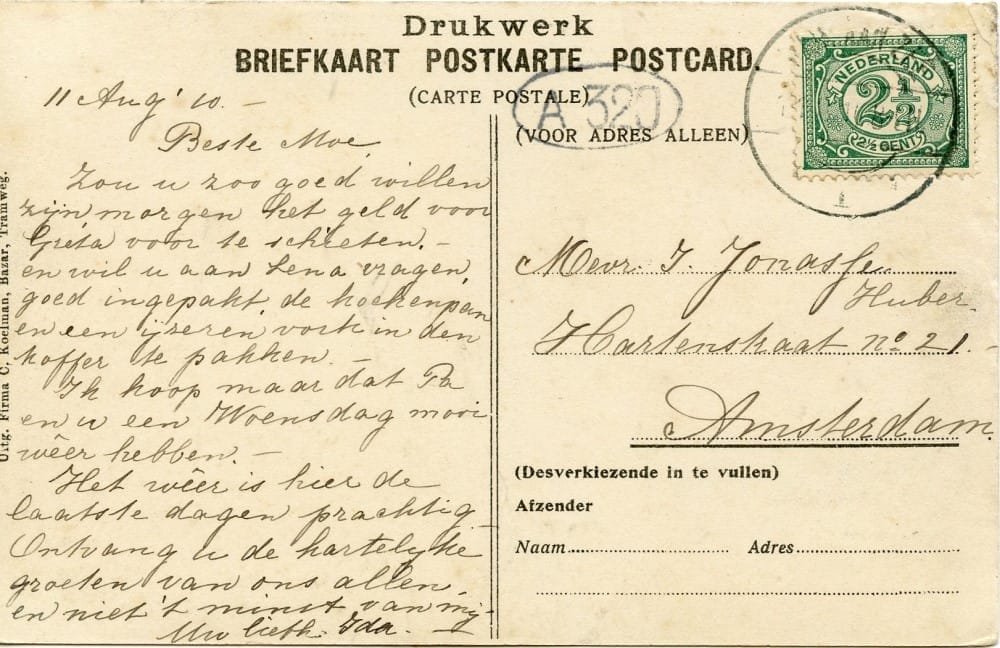 Drukwerk
BRIEFKAART POSTKARTE POSTCARD.
(CARTE POSTALE)
A 320
(VOOR ADRES ALLEEN)
NEDERLAND
2 1/2
2½ CENT
11 Aug' 10. -
Beste Moe,
Zou u zoo goed willen
zijn morgen het geld voor
Greta voor te schieten. -
en wil u aan Lena vragen,
goed ingepakt, de koekenpan
en een ijzeren vork in den
koffer te pakken. -
Ik hoop maar dat Pa
en u een Woensdag mooi
wêer hebben. -
Het wêer is hier de
laatste dagen prachtig
Ontvang u de hartelijke
groeten van ons allen,
en niet 't minst van mij
Uw liefh. Ida. -
Mevr. J. Jonasse
Huber
Hartenstraat no 21.
Amsterdam.
(Desverkiezende in te vullen)
Afzender
Naam Adres
Uitg. Firma C. Koelman, Bazar, Tramweg.